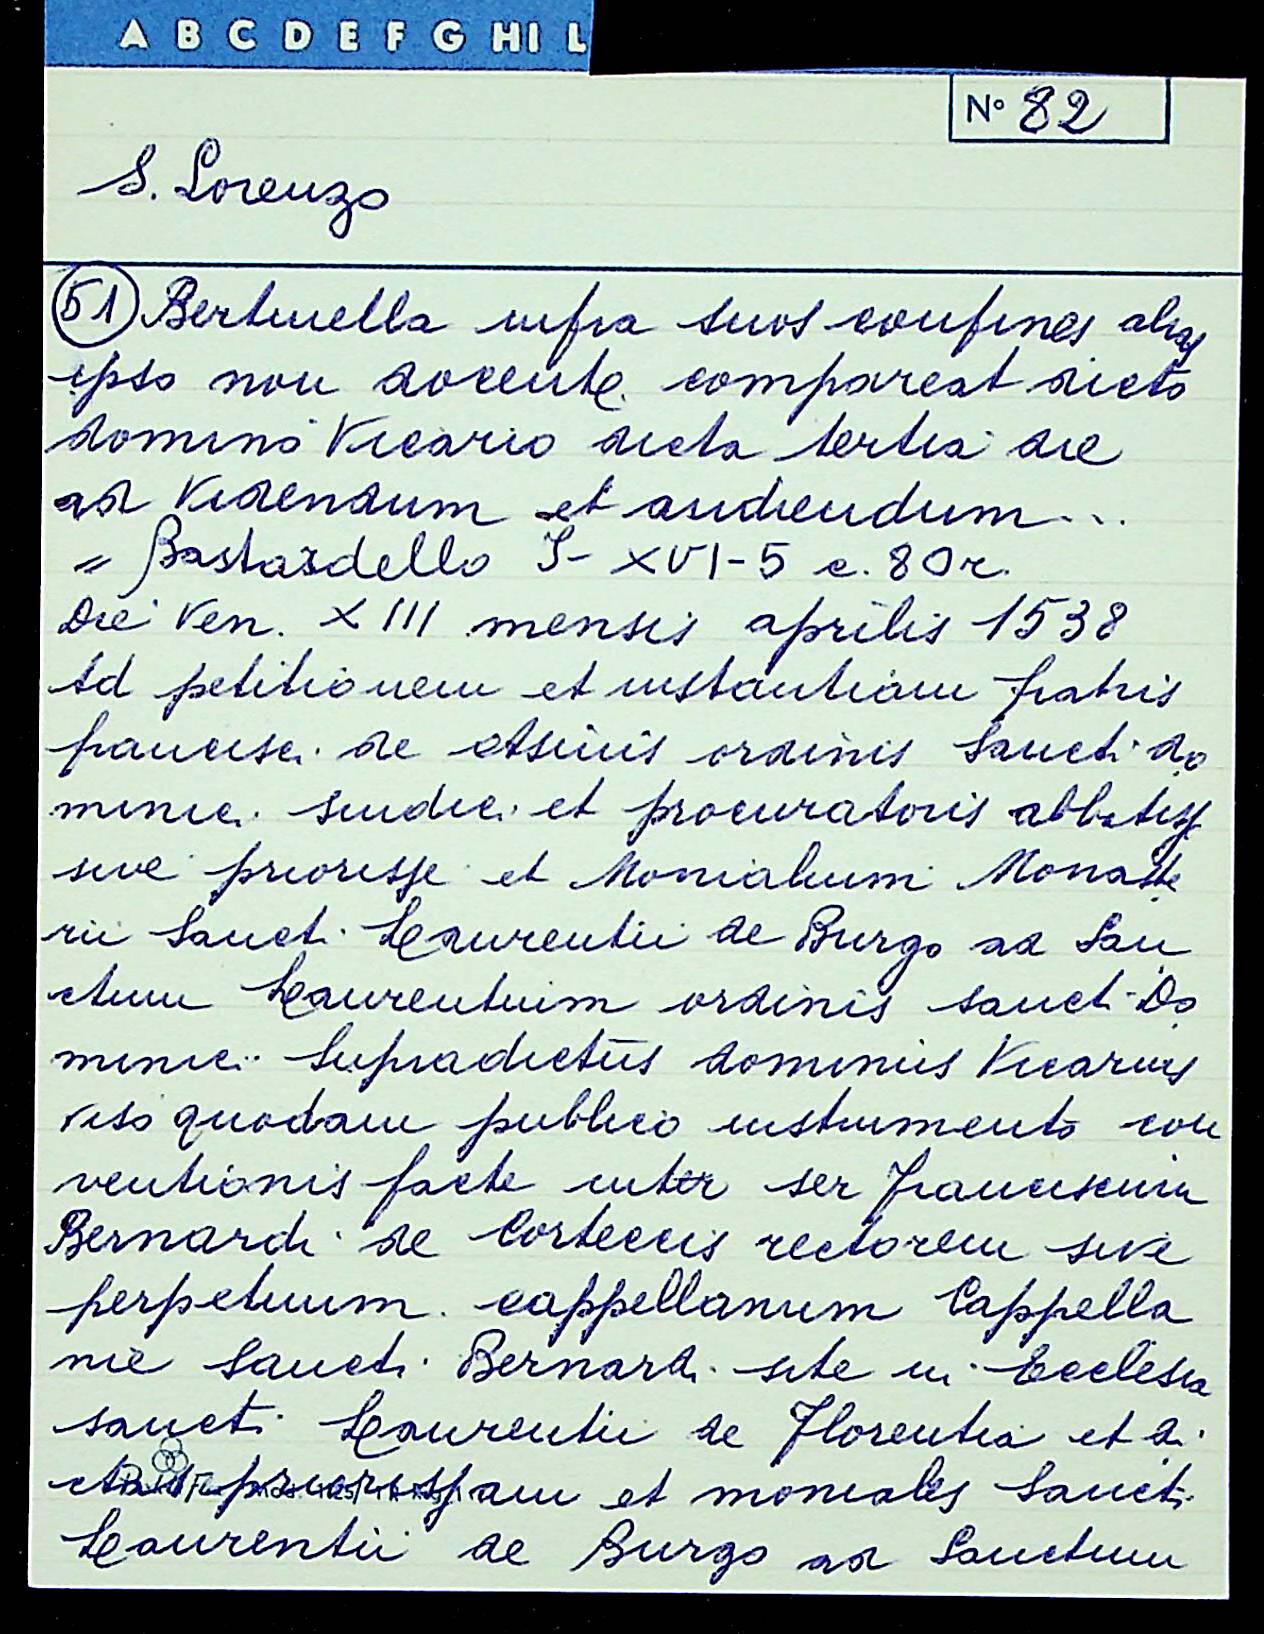 A B C D E F G HI L
N° 82
S. Lorenzo
51 Bertinella infra suos confines alias
ipso non docente compareat dicto
domino Vicario dicta tertia die
ad videndum et audiendum...
" Bastardello I- XVI-5 c. 80r.
Die Ven. XIII mensis aprilis 1538
Ad petitionem et instantiam fratris
francisci de Assinis ordinis Sancti do
minici sindici et procuratoris abbatisse
sive priorisse et Monialium Monaste
rii Sancti Laurentii de Burgo ad San
ctum Laurentium ordinis sancti Do
minici Supradictus dominus Vicarius
viso quodam publico instrumento con
ventionis facte inter ser Franciscum
Bernardi de Corteccis rectorem sive
perpetuum cappellanum Cappella
nie Sancti Bernardi site in Ecclesia
sancti Laurentii de Florentia et di
ctam priorissam et moniales Sancti
Laurentii de Burgo ad Sanctum